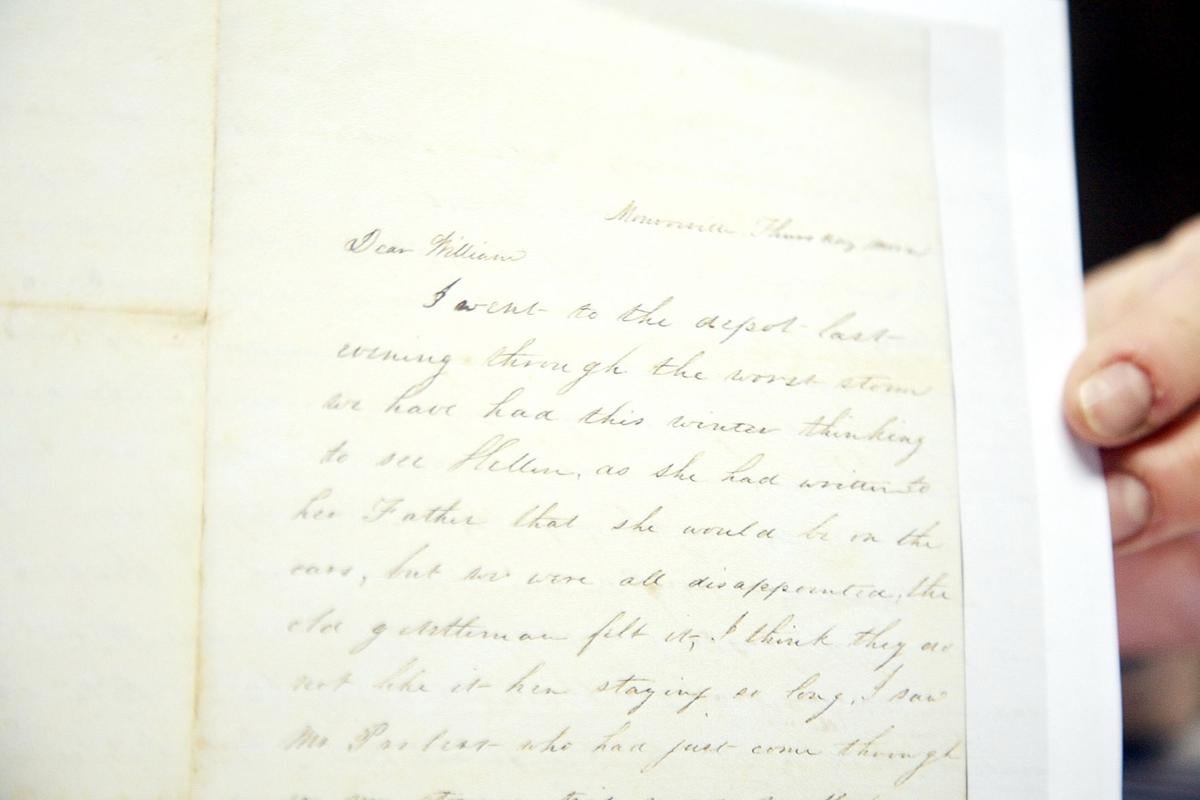 Monroeville Thursday morn
Dear William
I went to the depot last
evening through the worst storm
we have had this winter thinking
to see Hellen, as she had written to
her Father that she would be on the
cars, but we were all disappointed, the
old gentleman felt it, I think they do
not like it her staying so long, I saw
Mr who had just come through